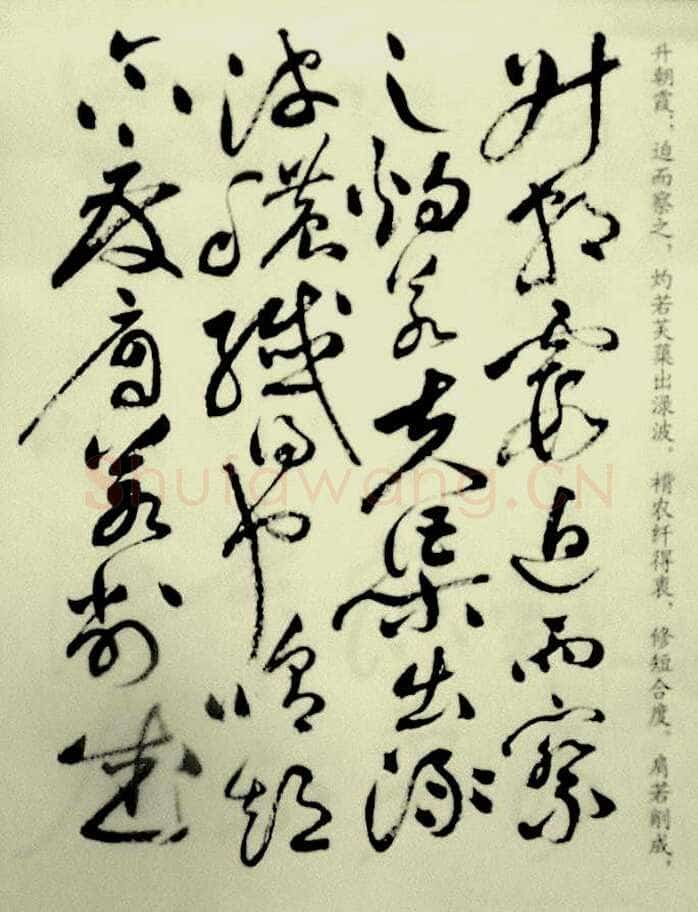 升朝霞；迫而察之，灼若芙蕖出渌波。农纤得衷，修短合度。肩若削成，
升朝霞迫而察
之灼若夫渠出渌
波穠纖得中脩短
合度肩若削成
Shufawang.CN